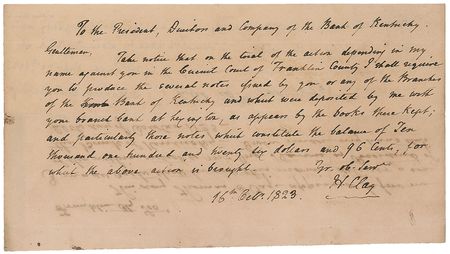 To the President, Directors and Company of the Bank of Kentucky.
Gentlemen, Take notice that on the trial of the action depending in my
name against you in the Circuit Court of Franklin County I shall require
you to produce the several notes issued by you or any of the Branches
of the Bank of Kentucky and which were deposited by me with
your branch bank at Lexington, as appears by the books there kept;
and particularly those notes which constitute the balance of Ten
thousand one hundred and twenty six dollars and 96 Cents, for
which the above action is brought. Yr. ob. Serv.
16th Octr. 1823. H. Clay